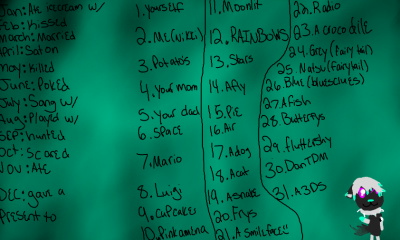 Jan: Ate icecream w/
Feb: Kissed
March: Married
April: Sat on
May: Killed
June: Poked
July: Song w/
Aug: Played w/
Sep: Hunted
Oct: Scared
Nov: Ate
Dec: gave a
Present to
1. yourself
2. Me (Nikki)
3. Potatos
4. your mom
5. your dad
6. Space
7. Mario
8. Luigi
9. Cupcake
10. Pinkamena
11. Moonlit
12. RAiNBOWS
13. Stars
14. A fly
15. Pie
16. Air
17. A dog
18. A cat
19. A snake
20. Frys
21. A Smileface"
22. Radio
23. A crocodeile
24. Grey (Fairy tail)
25. Natsu (fairytail)
26. Blue (bluesclues)
27. A fish
28. Butterflys
29. fluttershy
30. DanTDM
31. A 3DS